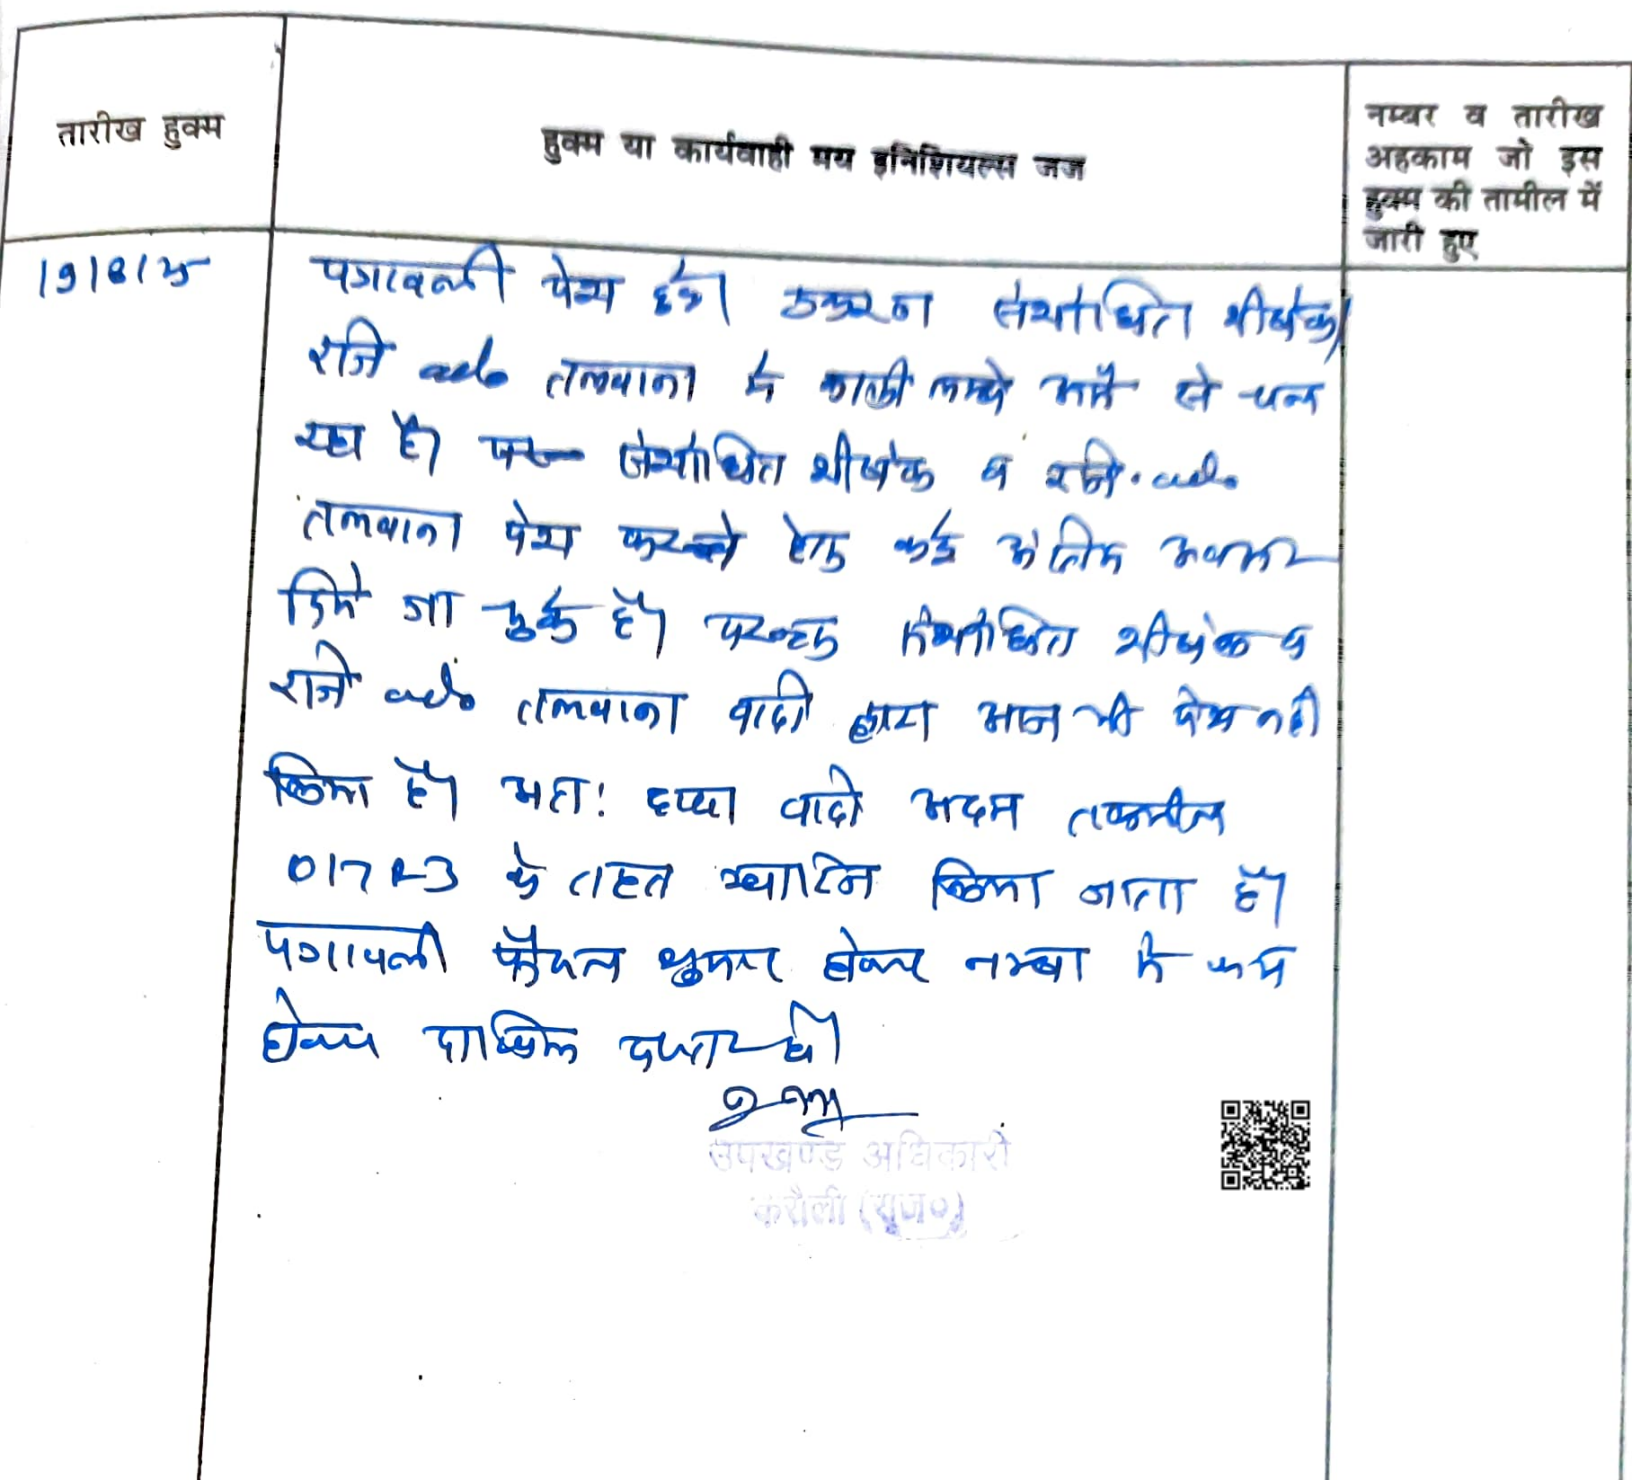 तारीख हुक्म
हुक्म या कार्यवाही मय इनिशियल्स जज
नम्बर व तारीख
अहकाम जो इस
हुक्म की तामील में
जारी हुए
19/8/25
पत्रावली पेश हुई। प्रकरण संशोधित शीर्षक/
रजि तलवाना में काफी लम्बे अर्से से चल
रहा है। संशोधित शीर्षक व रजि.
तलवाना पेश करने हेतु कई अंतिम अवसर
दिये जा चुके हैं। परन्तु संशोधित शीर्षक व
रजि तलवाना वादी द्वारा आज भी पेश नही
किया है। अतः दावा वादी अदम तकमील
017 R-3 के तहत खारिज किया जाता है।
पत्रावली फैसल शुमार होकर नम्बर से कम
होकर दाखिल दफ्तर हो।
उपखण्ड अधिकारी
करौली (राज०)